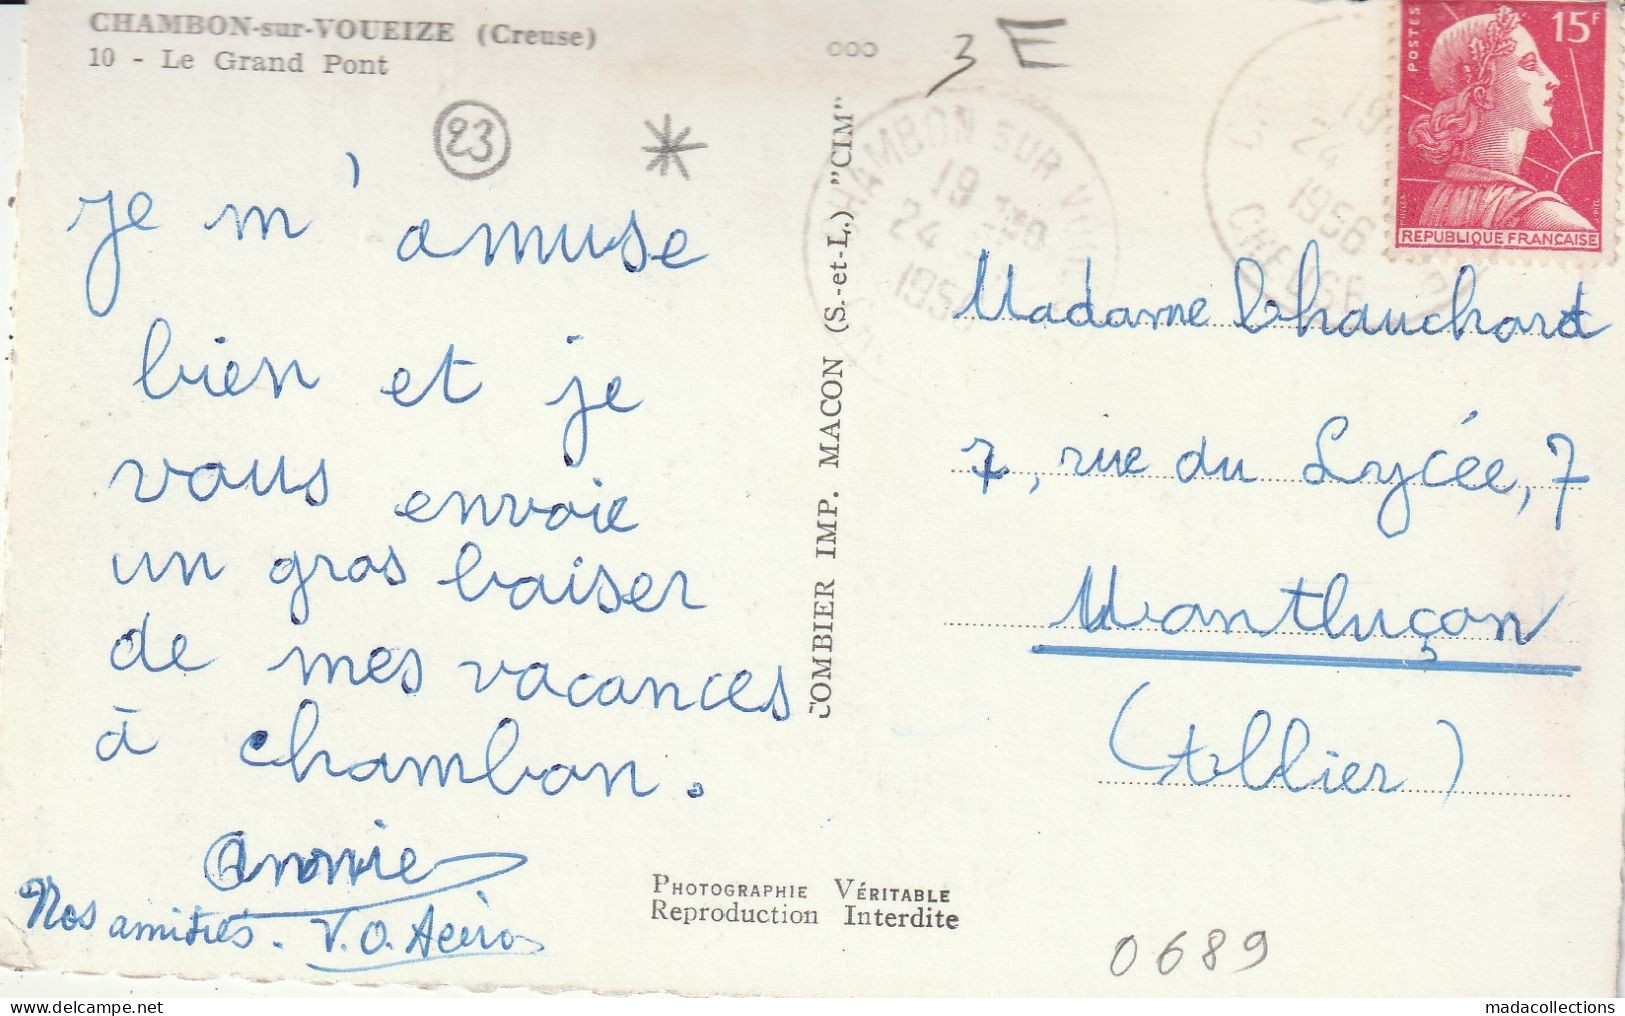 CHAMBON-sur-VOUEIZE (Creuse)
10 - Le Grand Pont
3 E
23
je m'amuse
bien et je
vous envoie
un gros baiser
de mes vacances
à chambon.
Annie
Nos amitiés.
COMBIER IMP. MACON (S.-et-L.) "CIM"
CHAMBON SUR V
19
24
1956
19
24
1956
CREUSE
POSTES
15F
REPUBLIQUE FRANÇAISE
Madame Chauchard
7, rue du Lycée, 7
Montluçon
(Allier)
PHOTOGRAPHIE VÉRITABLE
Reproduction Interdite
0689
www.delcampe.net
madacollections